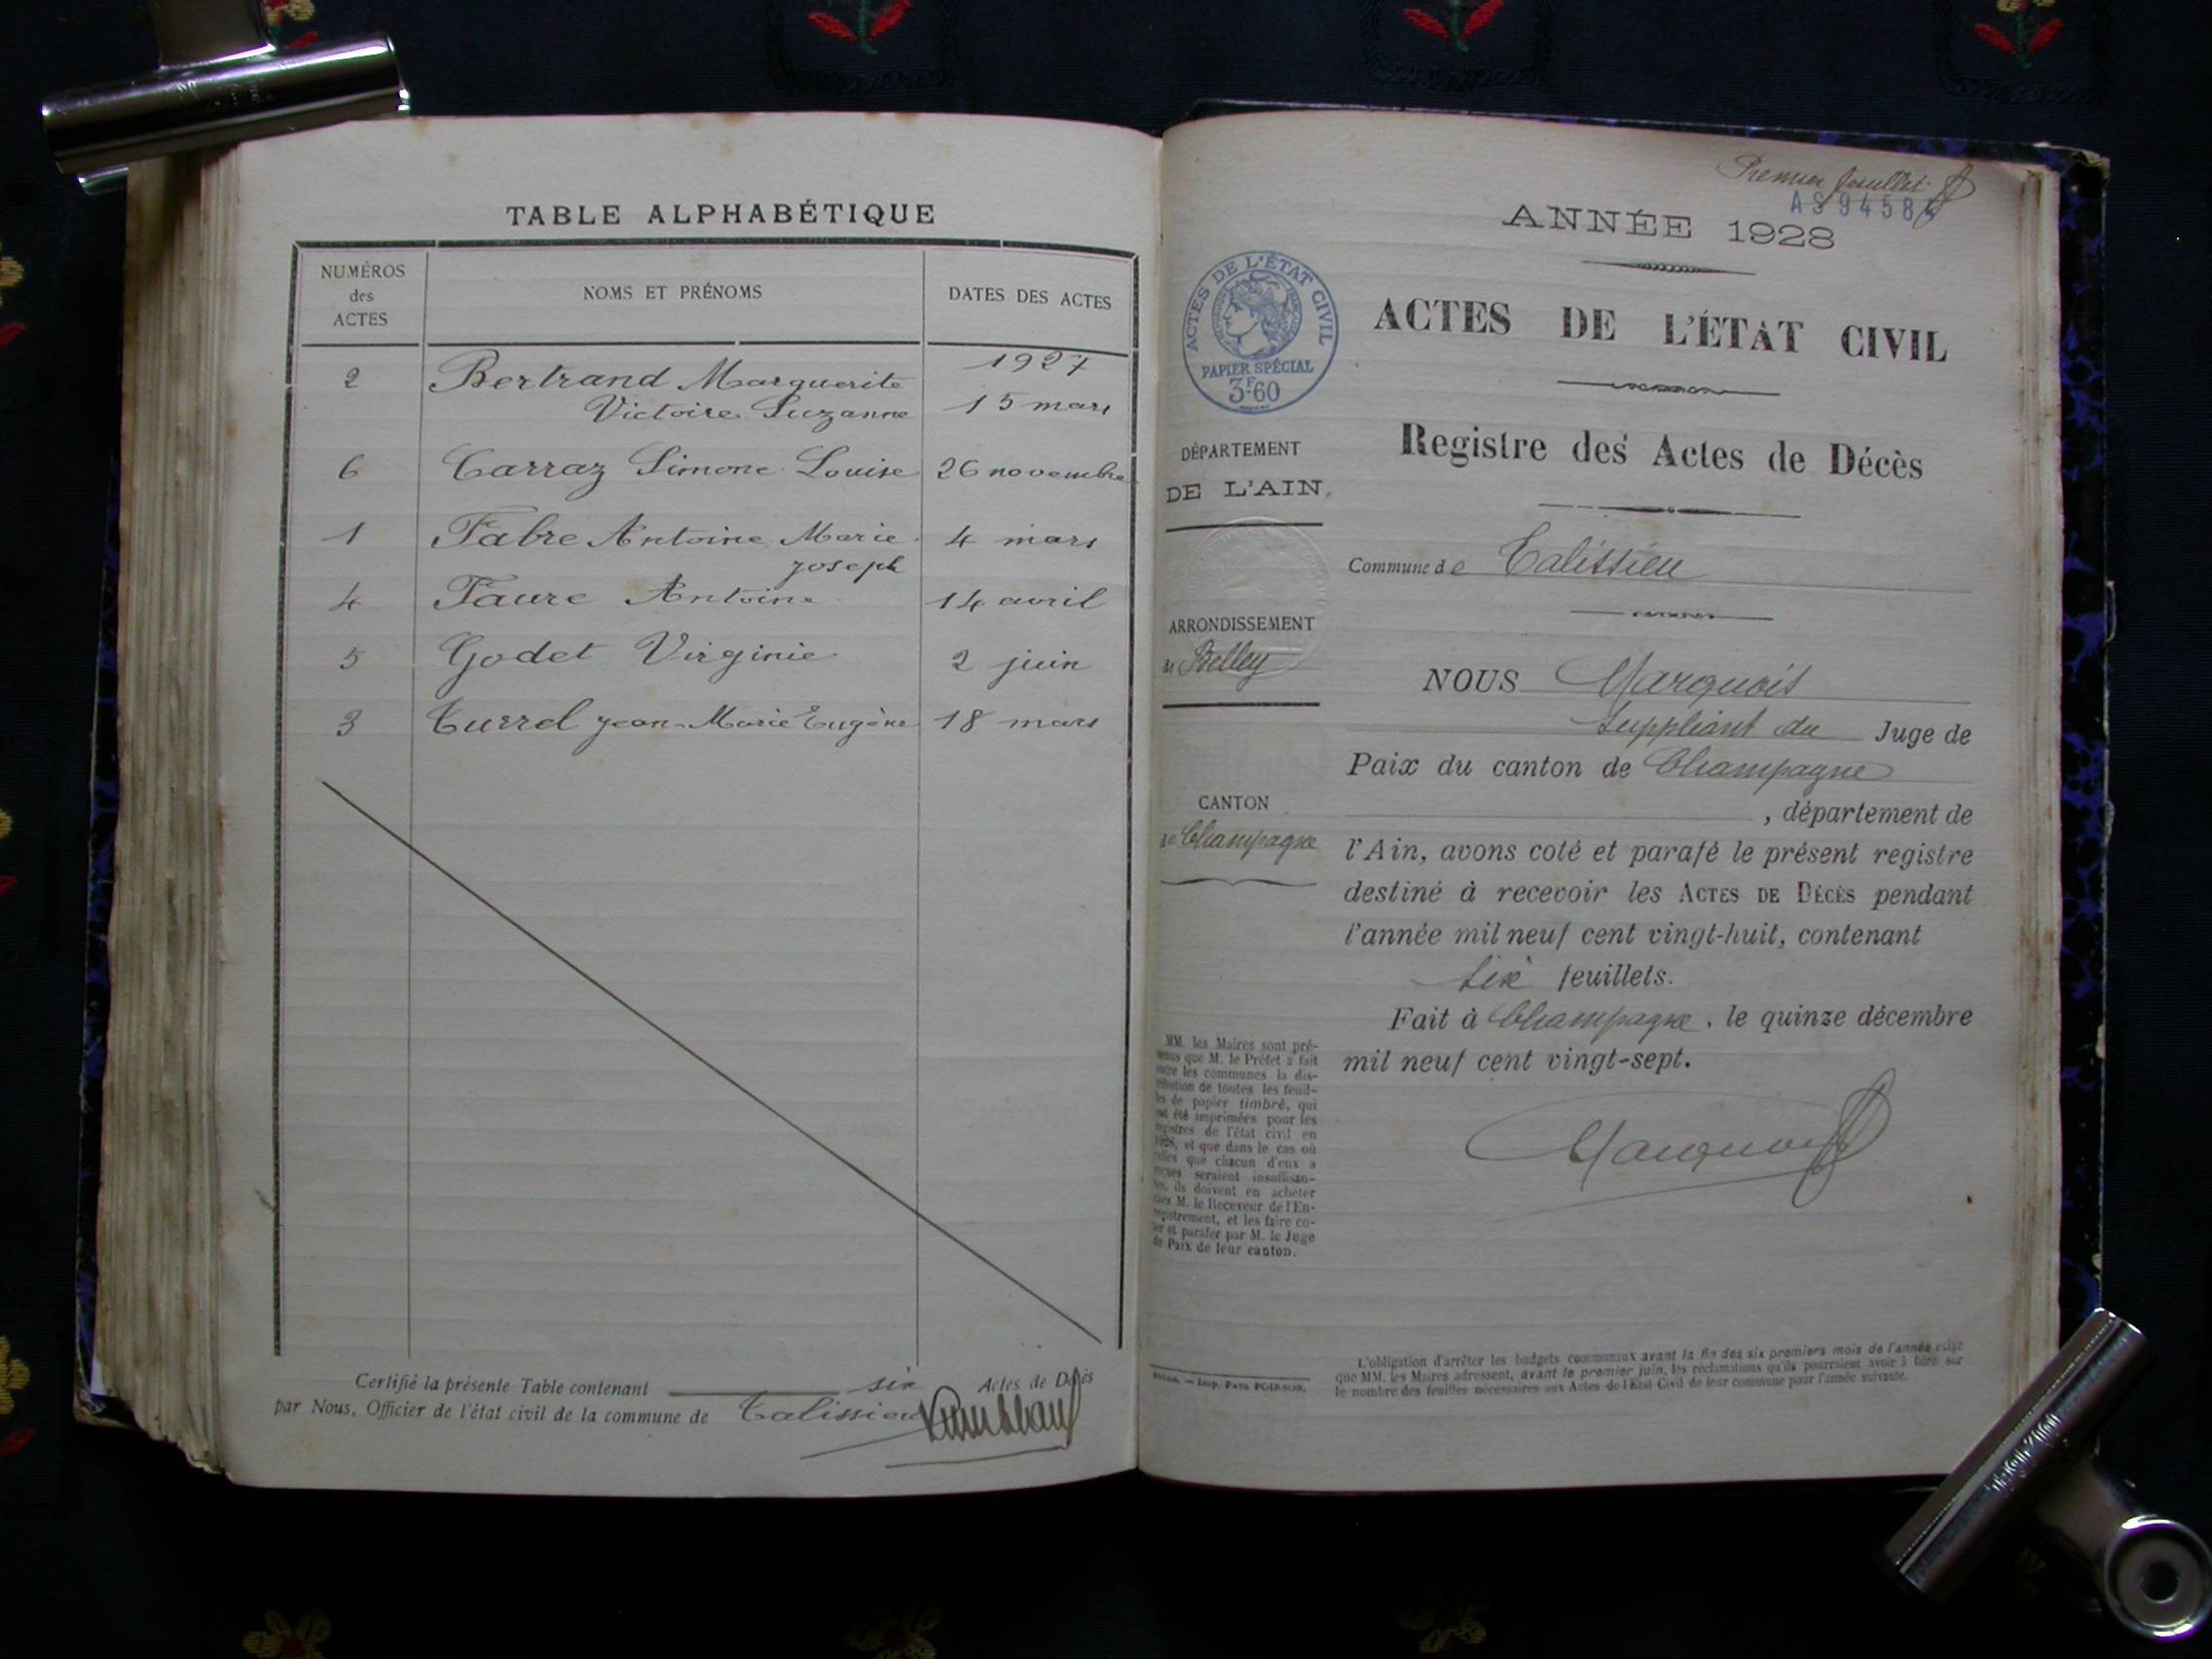 TABLE ALPHABÉTIQUE
NUMÉROS
des
ACTES
NOMS ET PRÉNOMS
DATES DES ACTES
1927
2 Bertrand Marguerite
Victoire Suzanne 15 mars
6 Carraz Simone Louise 26 novembre
1 Fabre Antoine Marie 4 mars
Joseph
4 Faure Antoine 14 avril
5 Godet Virginie 2 juin
3 Turrel Jean-Marie Eugène 18 mars
Certifié la présente Table contenant six Actes de Décès
par Nous, Officier de l'état civil de la commune de Talissieu
Premier feuillet
AS94584
ANNÉE 1928
ACTES DE L'ÉTAT CIVIL
PAPIER SPÉCIAL
3F60
ACTES DE L'ÉTAT CIVIL
Registre des Actes de Décès
DÉPARTEMENT
DE L'AIN
Commune de Talissieu
ARRONDISSEMENT
de Belley
NOUS Marquois
Suppléant du Juge de
Paix du canton de Champagne
, département de
CANTON
de Champagne
l'Ain, avons coté et parafé le présent registre
destiné à recevoir les ACTES DE DÉCÈS pendant
l'année mil neuf cent vingt-huit, contenant
six feuillets.
Fait à Champagne, le quinze décembre
mil neuf cent vingt-sept.
Marquois
MM. les Maires sont pré-
venus que M. le Préfet a fait
entre les communes la dis-
tribution de toutes les feuil-
les de papier timbré, qui
ont été imprimées pour les
registres de l'état civil en
1928, et que dans le cas où
celles que chacun d'eux a
reçues seraient insuffisan-
tes, ils doivent en acheter
chez M. le Receveur de l'En-
registrement, et les faire co-
ter et parafer par M. le Juge
de Paix de leur canton.
Imp. Paul
L'obligation d'arrêter les budgets communaux avant la fin des six premiers mois de l'année exige
que MM. les Maires adressent, avant le premier juin, les réclamations qu'ils pourraient avoir à faire sur
le nombre des feuilles nécessaires aux Actes de l'État Civil de leur commune pour l'année suivante.